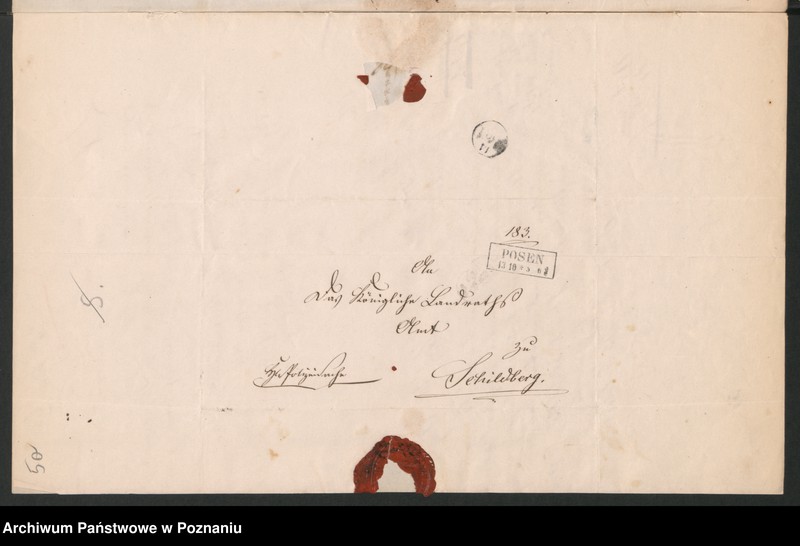 183.
POSEN
13 10
An
Das Königliche Landraths
Amt
zu
Schildberg.
Polizeisache
50
Archiwum Państwowe w Poznaniu